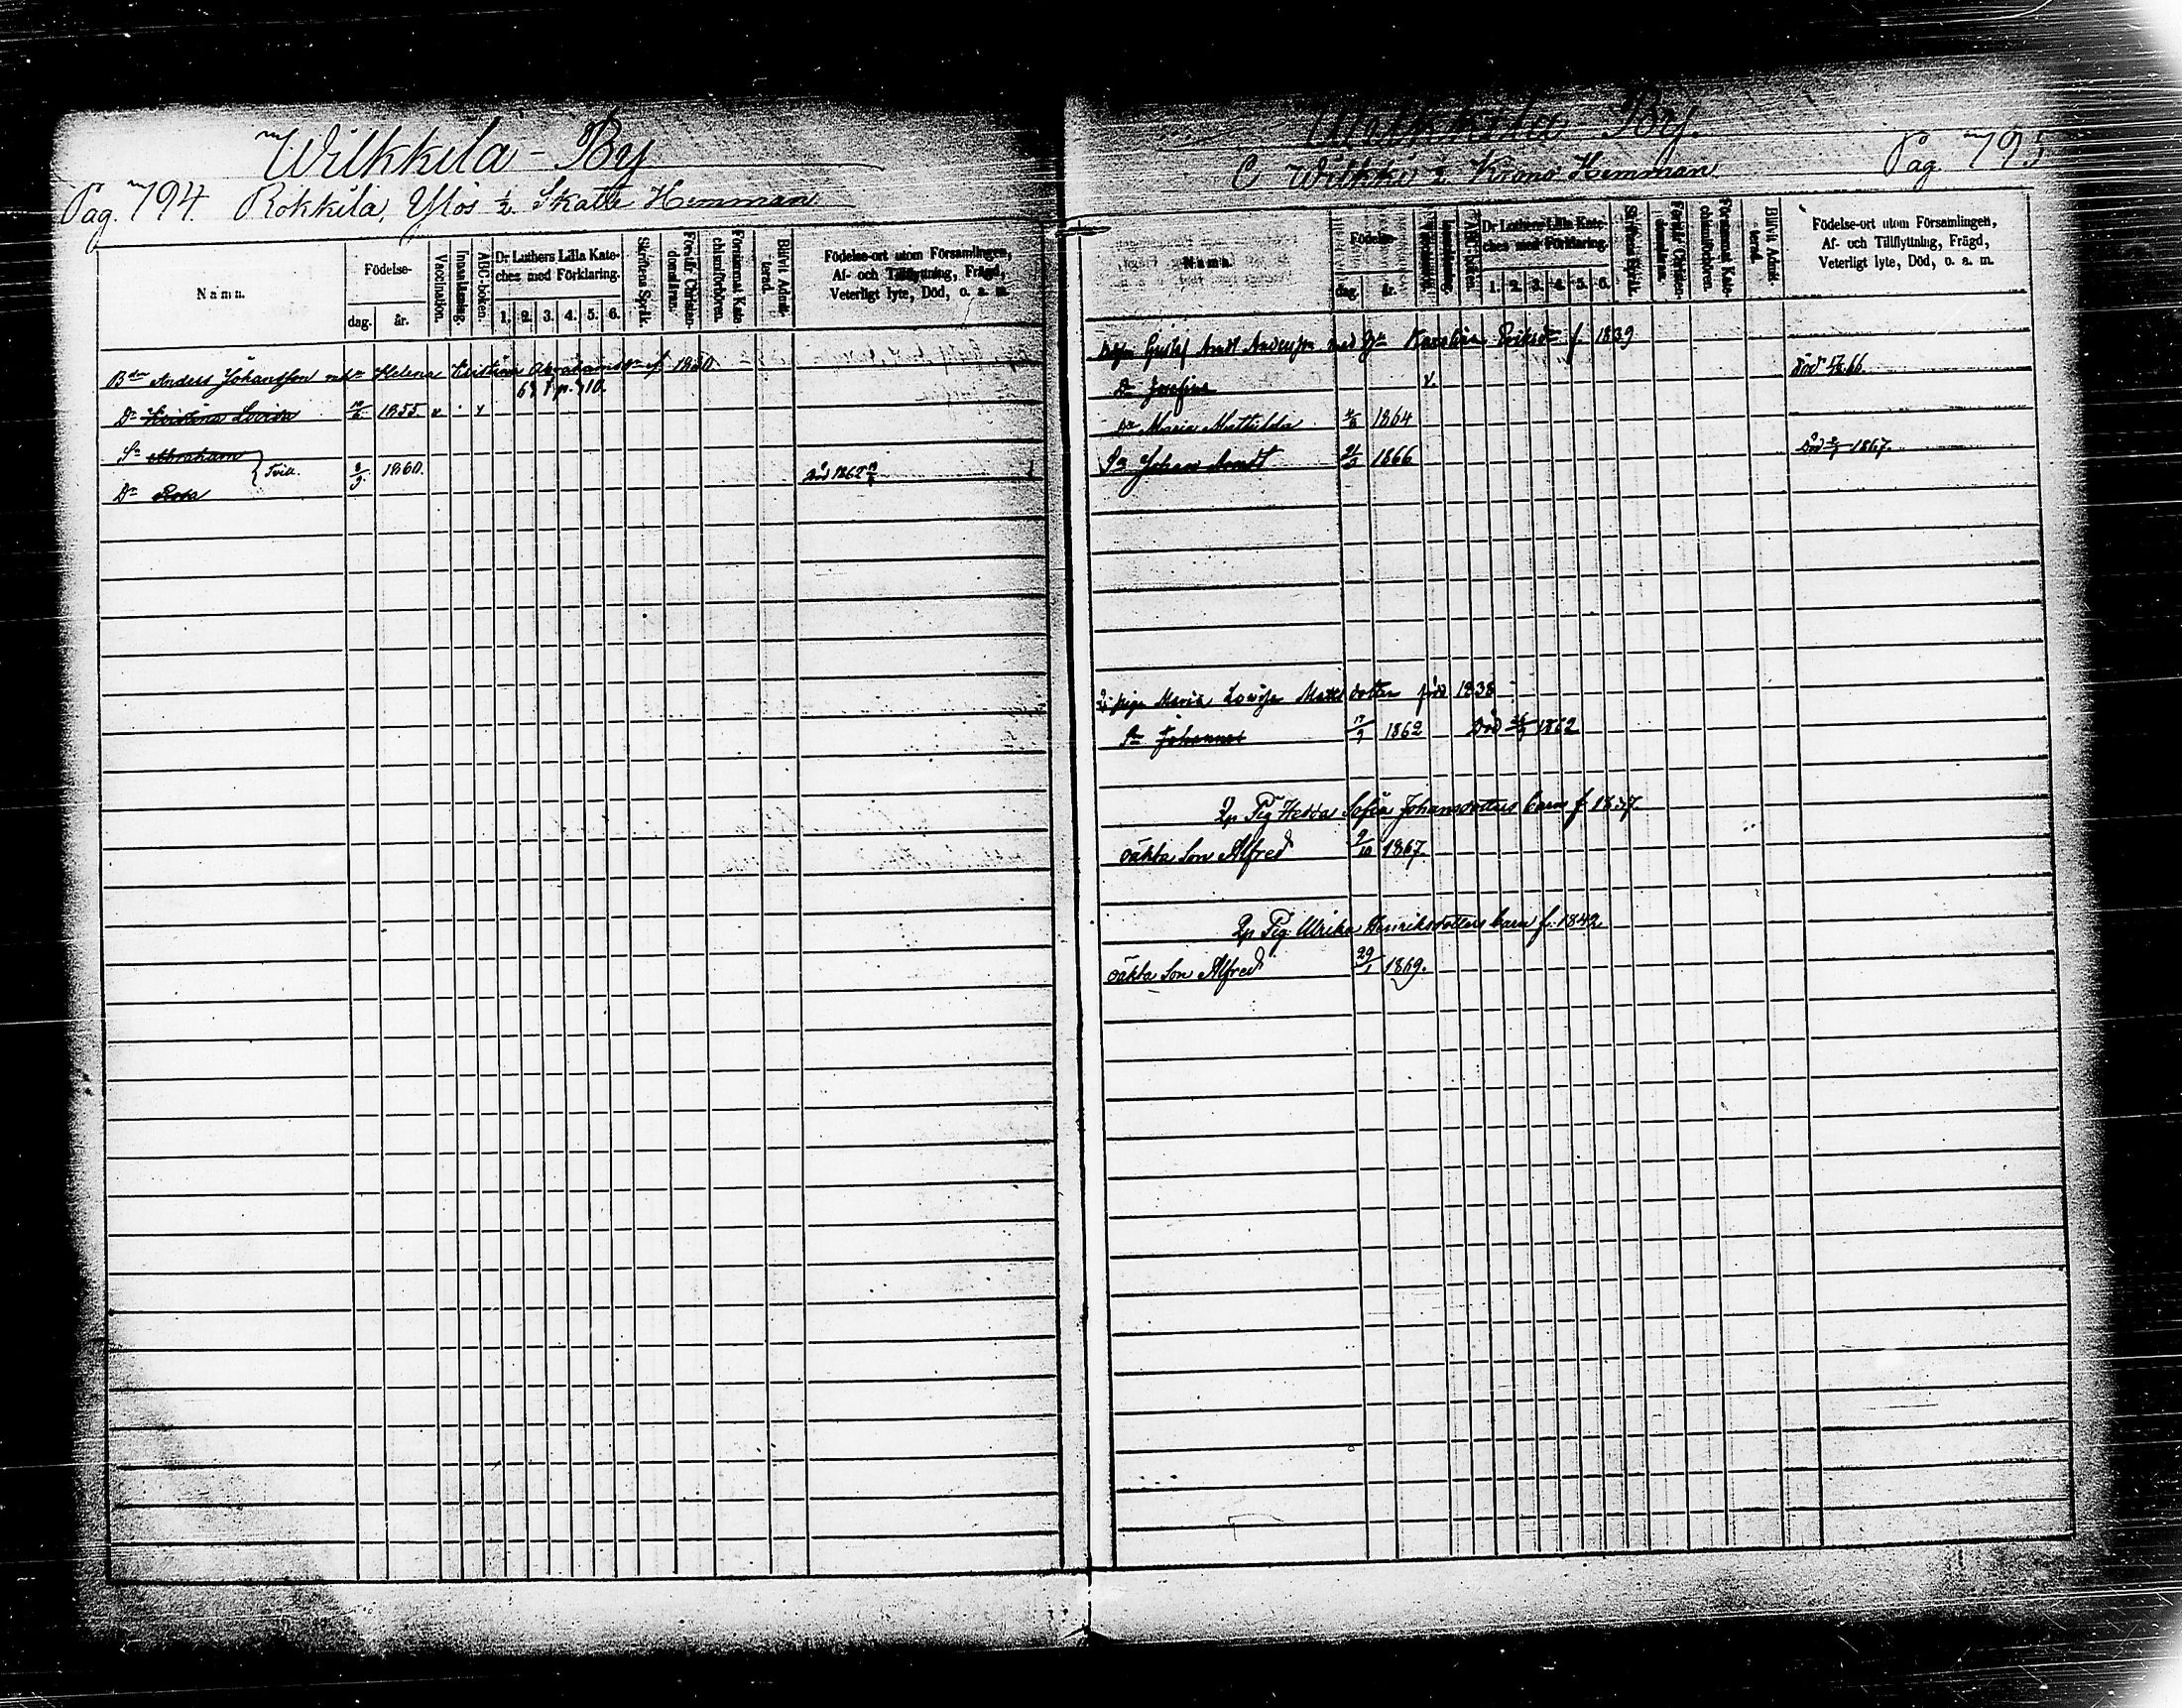 Wilkkila - By
Pag. 794. Rokkila, Ylös ½ Skatte Hemman
Namn.
Födelse-
dag.
år.
Vaccination.
Innanläsning.
ABC-boken.
Dr Luthers Lilla Kate-
ches med Förklaring.
1. 2. 3. 4. 5. 6.
Skriftens Språk.
Förstår Christen-
domsläran.
Försummat Kate-
chismiförhören.
Blifvit Admit-
terad.
Födelse-ort utom Församlingen,
Af- och Tillflyttning, Frägd,
Veterligt lyte, Död, o. s. m.
Bdn Anders Johansson m hu Helena Kristina Abrahamsdr f. 1830
Dr Kristina Lovisa 1855
Sn Abraham
Tvill. 8/9 1860.
Dr Rosa
död 1862
Wilkkila By.
Pag. 795
C Wilkki ½ Krono Hemman
Namn.
Födelse-
dag.
år.
Vaccination.
Innanläsning.
ABC-boken.
Dr Luthers Lilla Kate-
ches med Förklaring.
1. 2. 3. 4. 5. 6.
Skriftens Språk.
Förstår Christen-
domsläran.
Försummat Kate-
chismiförhören.
Blifvit Admit-
terad.
Födelse-ort utom Församlingen,
Af- och Tillflyttning, Frägd,
Veterligt lyte, Död, o. s. m.
Gustaf Arndt Andersson med Karolina Eriksdr f. 1839
Dr Josefina Död 66
Dr Maria Mathilda 1864
Sn Johan Arndt 21/3 1866 Död 1867.
Piga Maria Lovisa Matts dotter född 1838
Sn Johannes 1862 Död 1862
Pig Hedda Sofia Johansdotters barn f. 1837
oäkta Son Alfred 9/10 1867.
Pig. Ulrika Henriksdotters barn f. 1842
oäkta Son Alfred 29/1 1869.